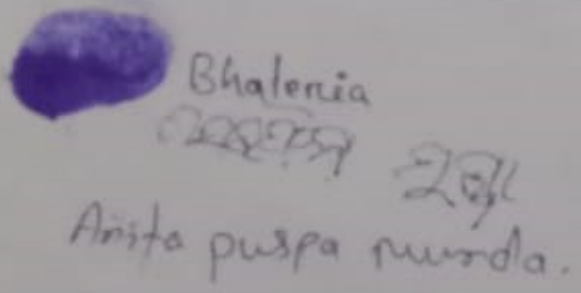 Bhaleria
ମୁଣ୍ଡା
Anita puspa munda.